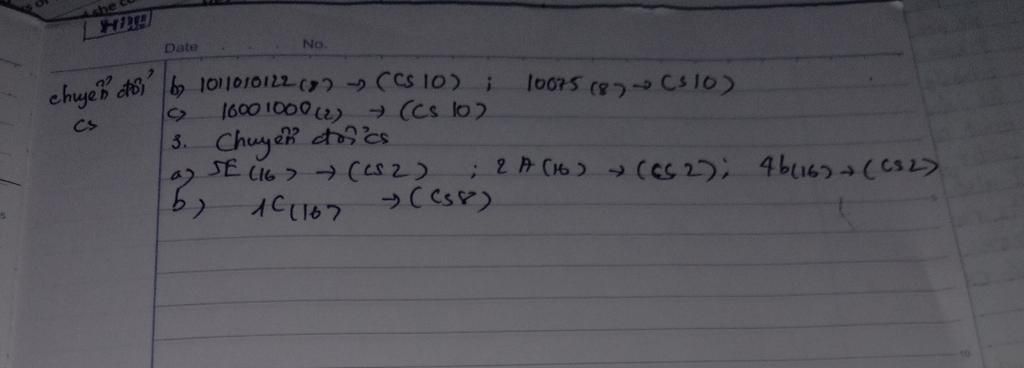 Date No.
chuyển đổi
cs
b) 1011010122 (8) → (CS 10) ; 10075 (8) → CS 10)
c) 10001000 (2) → (CS 10)
3. Chuyển đổi cs
a) 5E (16) → (CS 2) ; 2 A (16) → (CS 2) ; 4b (16) → (CS 2)
b) 1C (16) → (CS8)